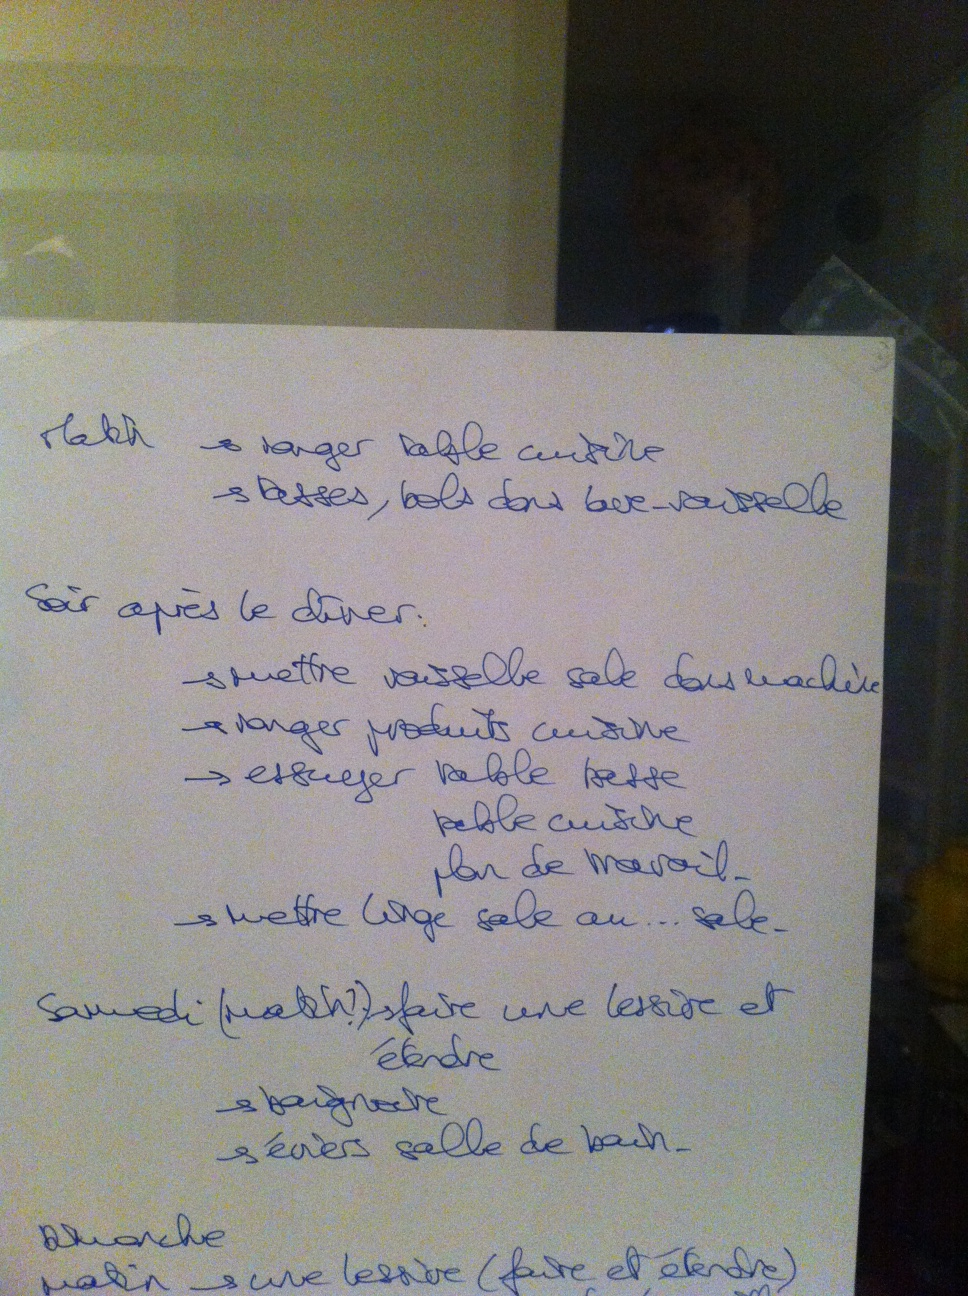 Matin → ranger table cuisine
→ tasses, bols dans lave-vaisselle
Soir après le dîner:
→ mettre vaisselle sale dans machine
→ ranger produits cuisine
→ essuyer table basse
table cuisine
plan de travail -
→ mettre linge sale au ... sale -
Samedi (matin?) → faire une lessive et
étendre
→ baignoire
→ éviers salle de bain -
Dimanche
matin → une lessive (faire et étendre)